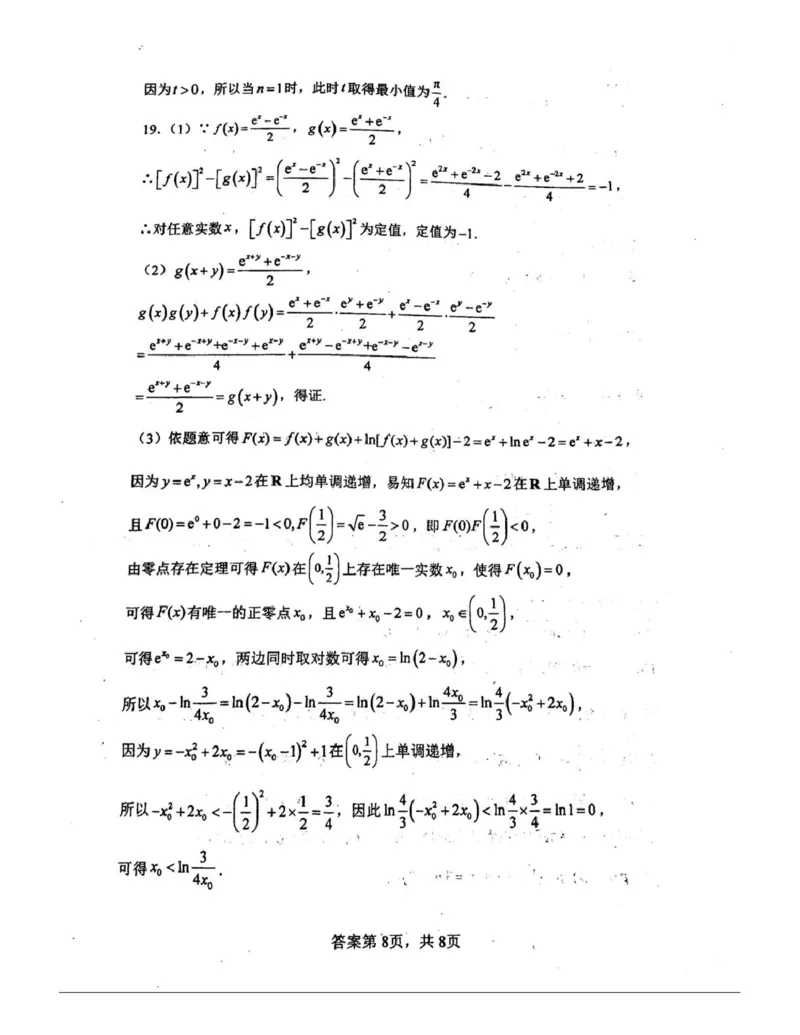 因为t>0，所以当n=1时，此时t取得最小值为π/4.
19.（1）∵f(x)=(eˣ−e⁻ˣ)/2，g(x)=(eˣ+e⁻ˣ)/2，
∴[f(x)]²−[g(x)]²=((eˣ−e⁻ˣ)/2)²−((eˣ+e⁻ˣ)/2)²=(e²ˣ+e⁻²ˣ−2)/4−(e²ˣ+e⁻²ˣ+2)/4=−1，
∴对任意实数x，[f(x)]²−[g(x)]²为定值，定值为−1.
（2）g(x+y)=(eˣ⁺ʸ+e⁻ˣ⁻ʸ)/2，
g(x)g(y)+f(x)f(y)=(eˣ+e⁻ˣ)/2·(eʸ+e⁻ʸ)/2+(eˣ−e⁻ˣ)/2·(eʸ−e⁻ʸ)/2
=(eˣ⁺ʸ+e⁻ˣ⁺ʸ+e⁻ˣ⁻ʸ+eˣ⁻ʸ)/4+(eˣ⁺ʸ−e⁻ˣ⁺ʸ+e⁻ˣ⁻ʸ−eˣ⁻ʸ)/4
=(eˣ⁺ʸ+e⁻ˣ⁻ʸ)/2=g(x+y)，得证.
（3）依题意可得F(x)=f(x)+g(x)+ln[f(x)+g(x)]−2=eˣ+lneˣ−2=eˣ+x−2，
因为y=eˣ,y=x−2在R上均单调递增，易知F(x)=eˣ+x−2在R上单调递增，
且F(0)=e⁰+0−2=−1<0,F(1/2)=√e−3/2>0，即F(0)F(1/2)<0，
由零点存在定理可得F(x)在(0,1/2)上存在唯一实数x₀，使得F(x₀)=0，
可得F(x)有唯一的正零点x₀，且e^(x₀)+x₀−2=0，x₀∈(0,1/2)，
可得e^(x₀)=2−x₀，两边同时取对数可得x₀=ln(2−x₀)，
所以x₀−ln3/(4x₀)=ln(2−x₀)−ln3/(4x₀)=ln(2−x₀)+ln(4x₀)/3=ln4/3(−x₀²+2x₀)，
因为y=−x₀²+2x₀=−(x₀−1)²+1在(0,1/2)上单调递增，
所以−x₀²+2x₀<−(1/2)²+2×1/2=3/4，因此ln4/3(−x₀²+2x₀)<ln4/3×3/4=ln1=0，
可得x₀<ln3/(4x₀).
答案第8页，共8页